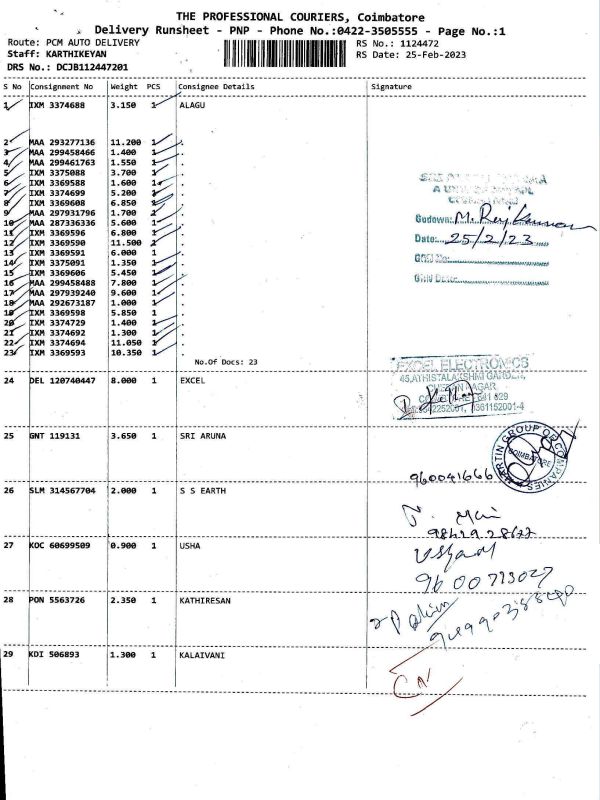 THE PROFESSIONAL COURIERS, Coimbatore
Delivery Runsheet - PNP - Phone No.:0422-3505555 - Page No.:1
Route: PCM AUTO DELIVERY RS No.: 1124472
Staff: KARTHIKEYAN RS Date: 25-Feb-2023
DRS No.: DCJB112447201
S No Consignment No Weight PCS Consignee Details Signature
1 IXM 3374688 3.150 1 ALAGU
2 MAA 293277136 11.200 1 .
3 MAA 299458466 1.400 1 .
4 MAA 299461763 1.550 1 .
5 IXM 3375088 3.700 1 .
6 IXM 3369588 1.600 1 .
7 IXM 3374699 5.200 1 .
8 IXM 3369608 6.850 1 .
9 MAA 297931796 1.700 1 .
10 MAA 287336336 5.600 1 .
11 IXM 3369596 6.800 1 .
12 IXM 3369590 11.500 1 .
13 IXM 3369591 6.000 1 .
14 IXM 3375091 1.350 1 .
15 IXM 3369606 5.450 1 .
16 MAA 299458488 7.800 1 .
17 MAA 297939240 9.600 1 .
18 MAA 292673187 1.000 1 .
19 IXM 3369598 5.850 1 .
20 IXM 3374729 1.400 1 .
21 IXM 3374692 1.300 1 .
22 IXM 3374694 11.050 1 .
23 IXM 3369593 10.350 1 .
No.Of Docs: 23
Godown:
Date: 25/2/23
GRN No:
GRN Date:
24 DEL 120740447 8.000 1 EXCEL
EXCEL ELECTRONICS
25 GNT 119131 3.650 1 SRI ARUNA
MARTIN GROUP OF COMPANIES
COIMBATORE
960041666
26 SLM 314567704 2.000 1 S S EARTH
27 KOC 60699509 0.900 1 USHA
28 PON 5563726 2.350 1 KATHIRESAN
29 KDI 506893 1.300 1 KALAIVANI